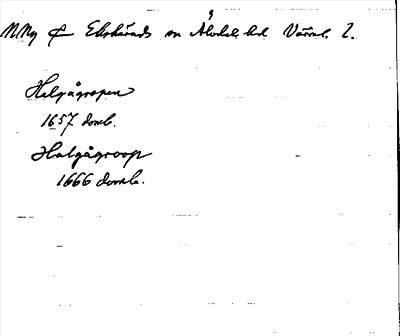 N Ny Ekshärads sn Älvdals hd Värml. l.
Helgågropen
1657 domb.
Halgågroop
1666 domb.